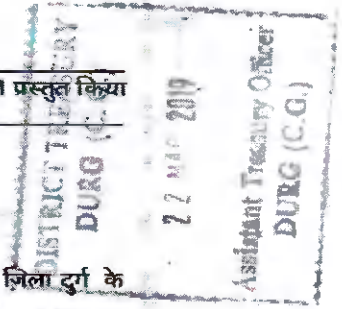 प्रस्तुत किया
जिला दुर्ग के
DISTRICT TREASURY
DURG (C.G.)
22 MAR 2019
Assistant Treasury Officer
DURG (C.G.)